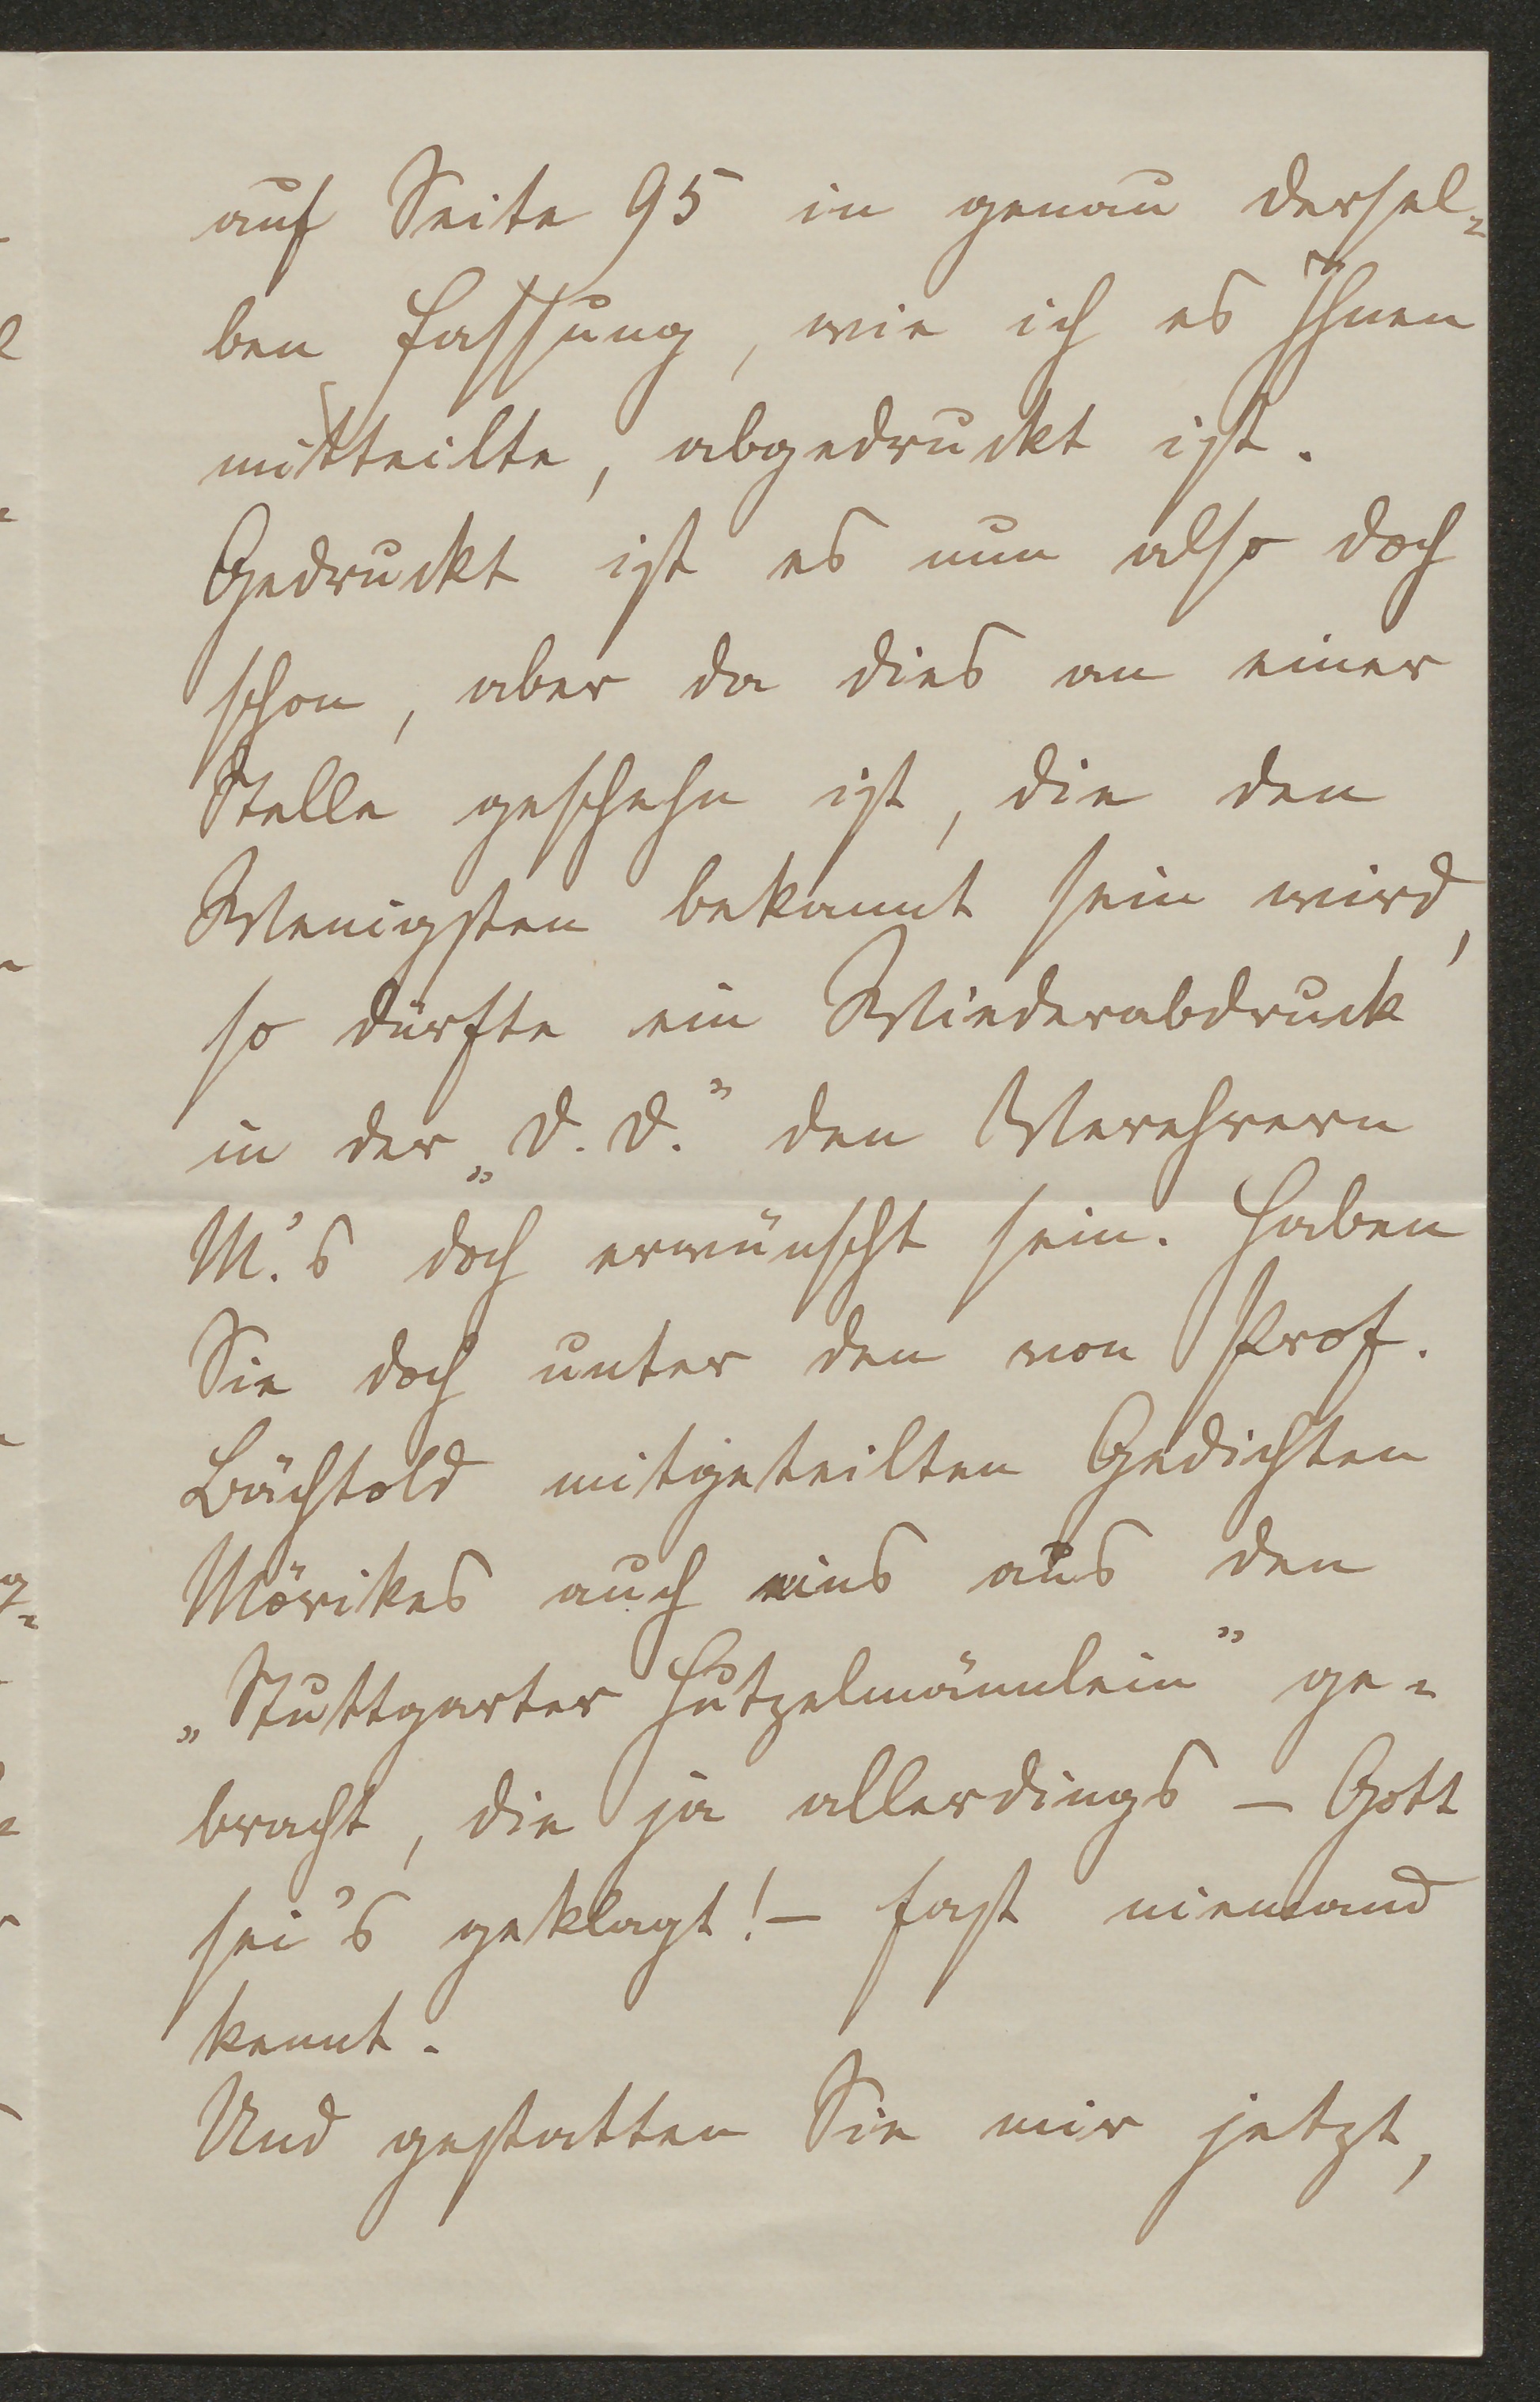 auf Seite 95 in genau dersel-
ben Fassung, wie ich es Ihnen
mitteilte, abgedruckt ist.
Gedruckt ist es nun also doch
schon, aber da dies an einer
Stelle geschehn ist, die den
Wenigsten bekannt sein wird,
so dürfte ein Wiederabdruck
in der „D. D.” den Verehrern
M.'s doch erwünscht sein. Haben
Sie doch unter den von Prof.
Bächtold mitgeteilten Gedichten
Mörikes auch eins aus den
„Stuttgarter Hutzelmännlein” ge-
bracht, die ja allerdings – Gott
sei's geklagt! – fast niemand
kennt.
Und gestatten Sie mir jetzt,